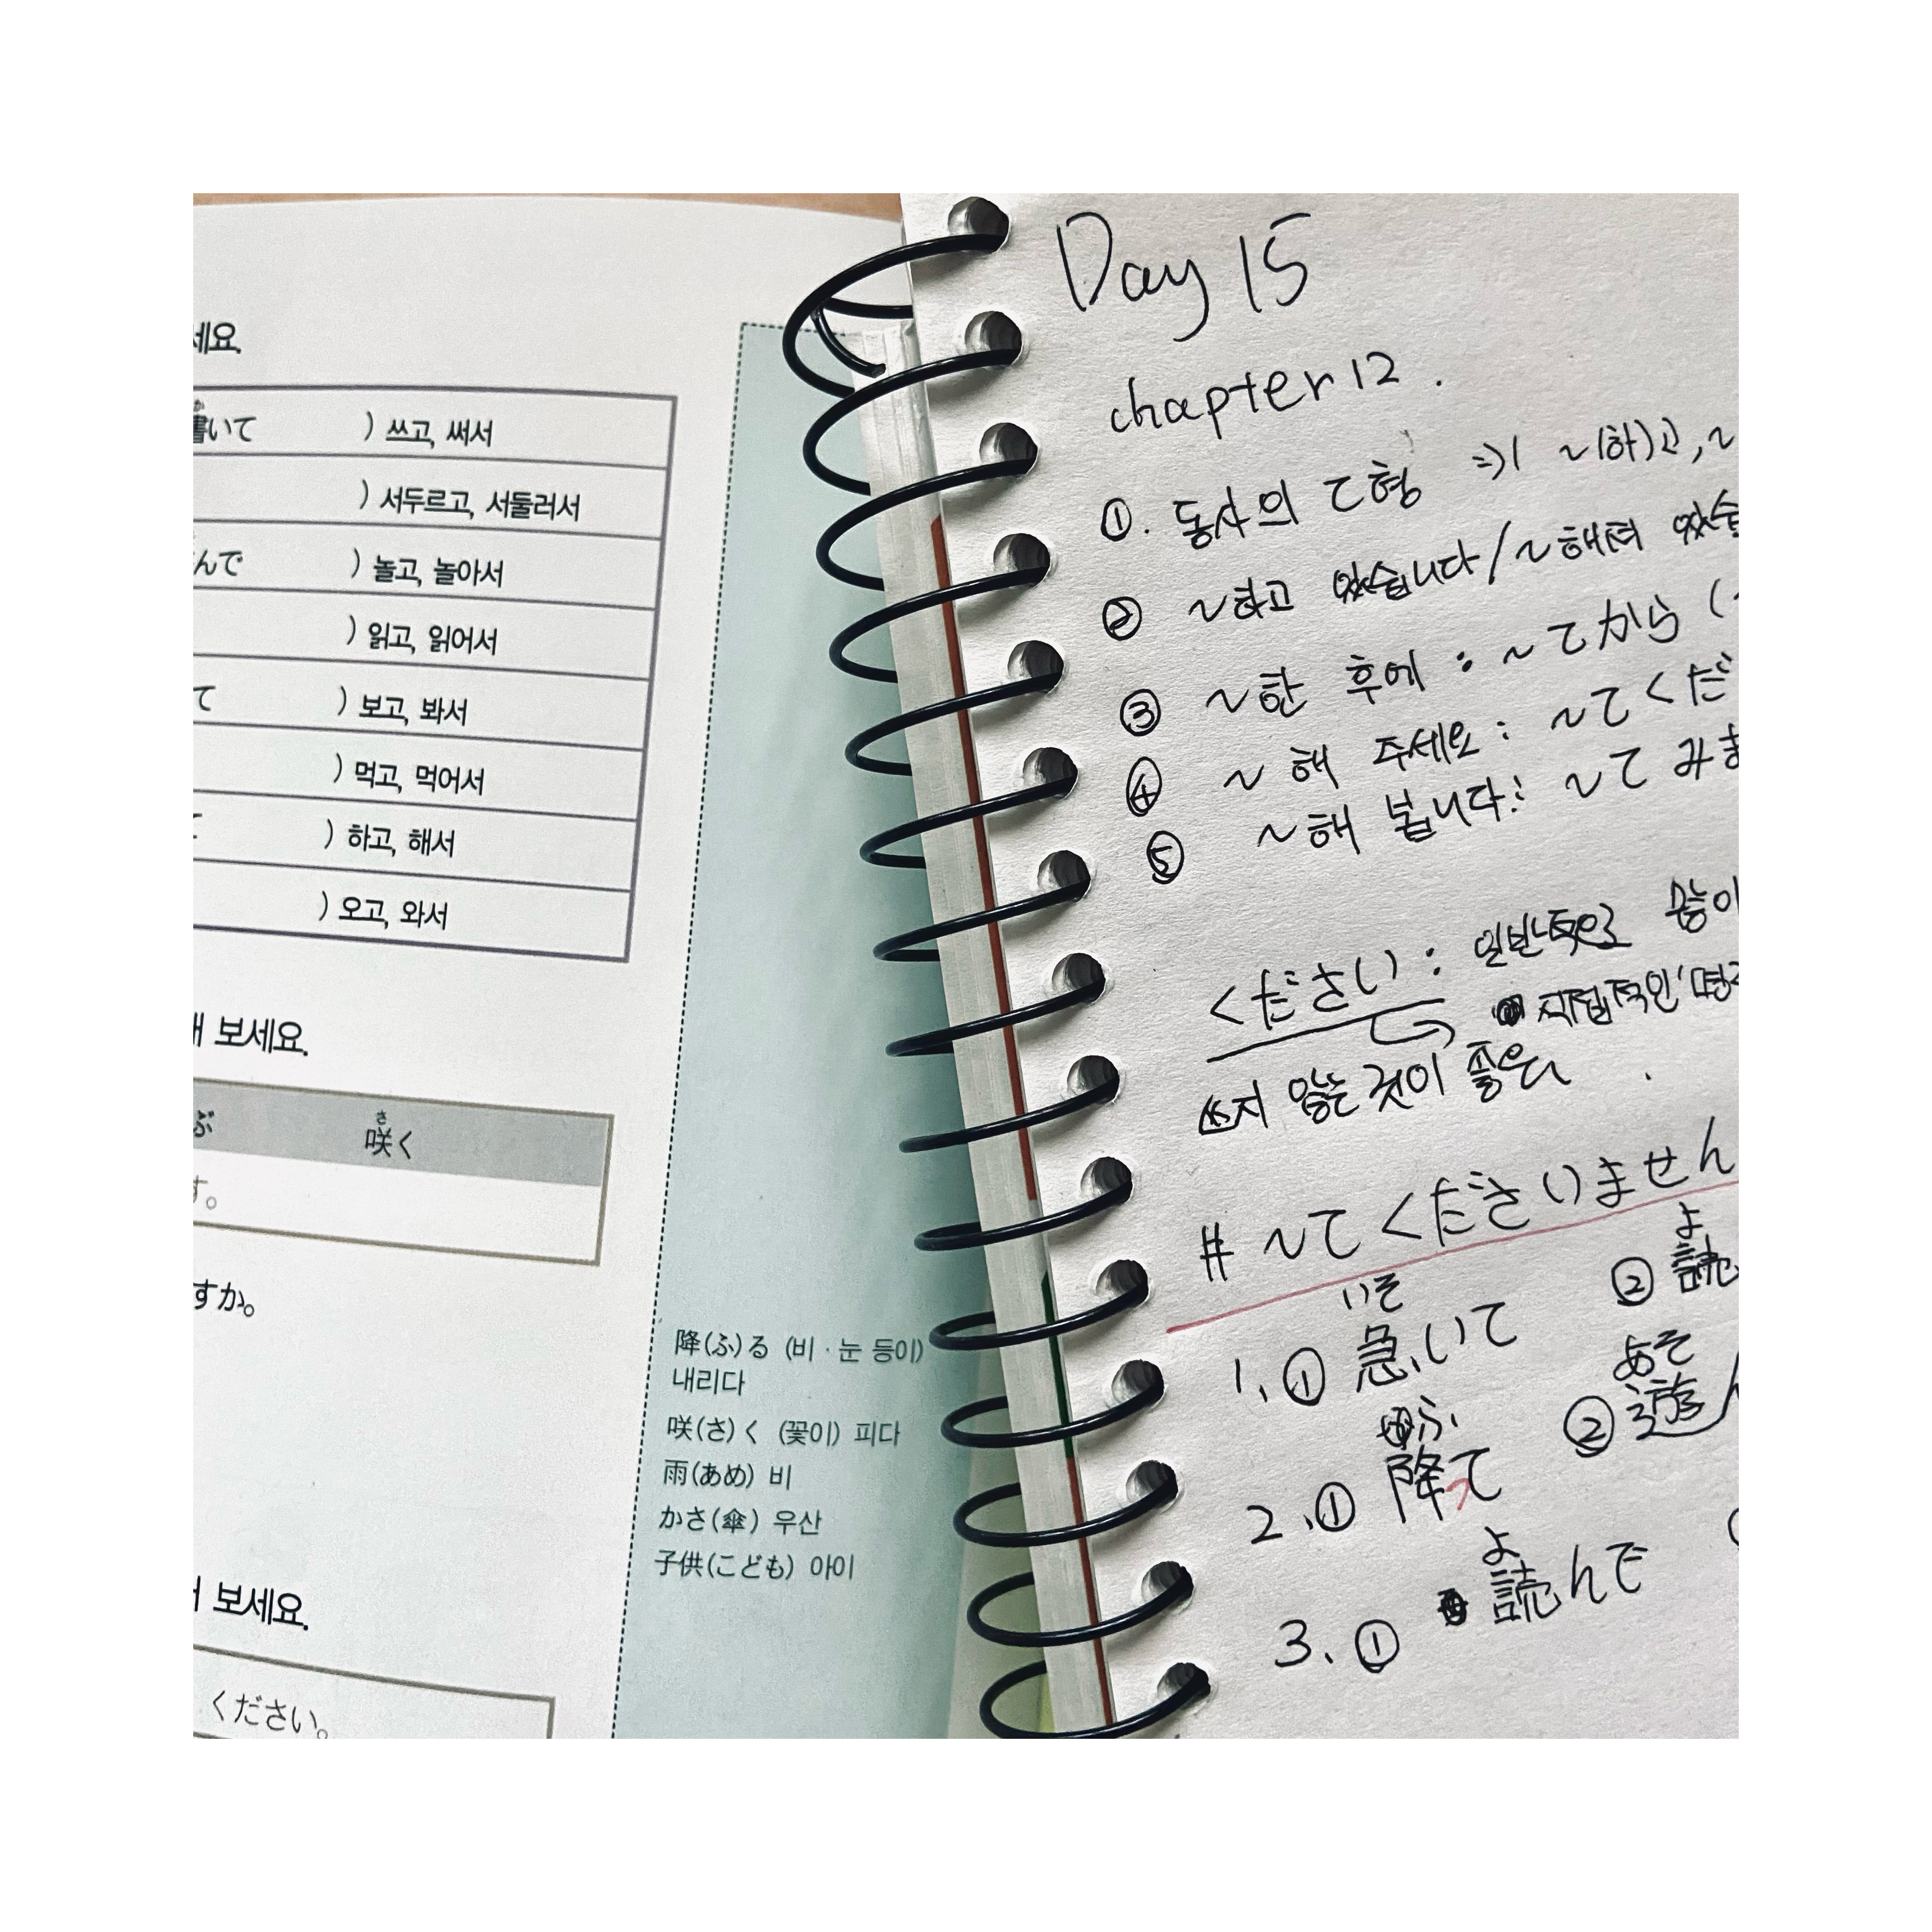 세요.
書いて ) 쓰고, 써서
) 서두르고, 서둘러서
んで ) 놀고, 놀아서
) 읽고, 읽어서
て ) 보고, 봐서
) 먹고, 먹어서
) 하고, 해서
) 오고, 와서
보세요.
ぶ 咲く
さ
す。
すか。
降(ふ)る (비·눈 등이)
내리다
咲(さ)く (꽃이) 피다
雨(あめ) 비
かさ(傘) 우산
子供(こども) 아이
보세요.
ください。
Day 15
chapter 12.
①. 동사의 て형 => ~(하)고, ~
② ~하고 있습니다/~해져 있습
③ ~한 후에 : ~てから (
④ ~해 주세요 : ~てくだ
⑤ ~해 봅니다 : ~て みま
ください : 일반적으로 많이
직접적인 '명
쓰지 않는 것이 좋은
# ~てくださいません
いそ よ
1. ① 急いで ② 読
ふ あそ
2. ① 降って ② 遊ん
よ
3. ① 読んで